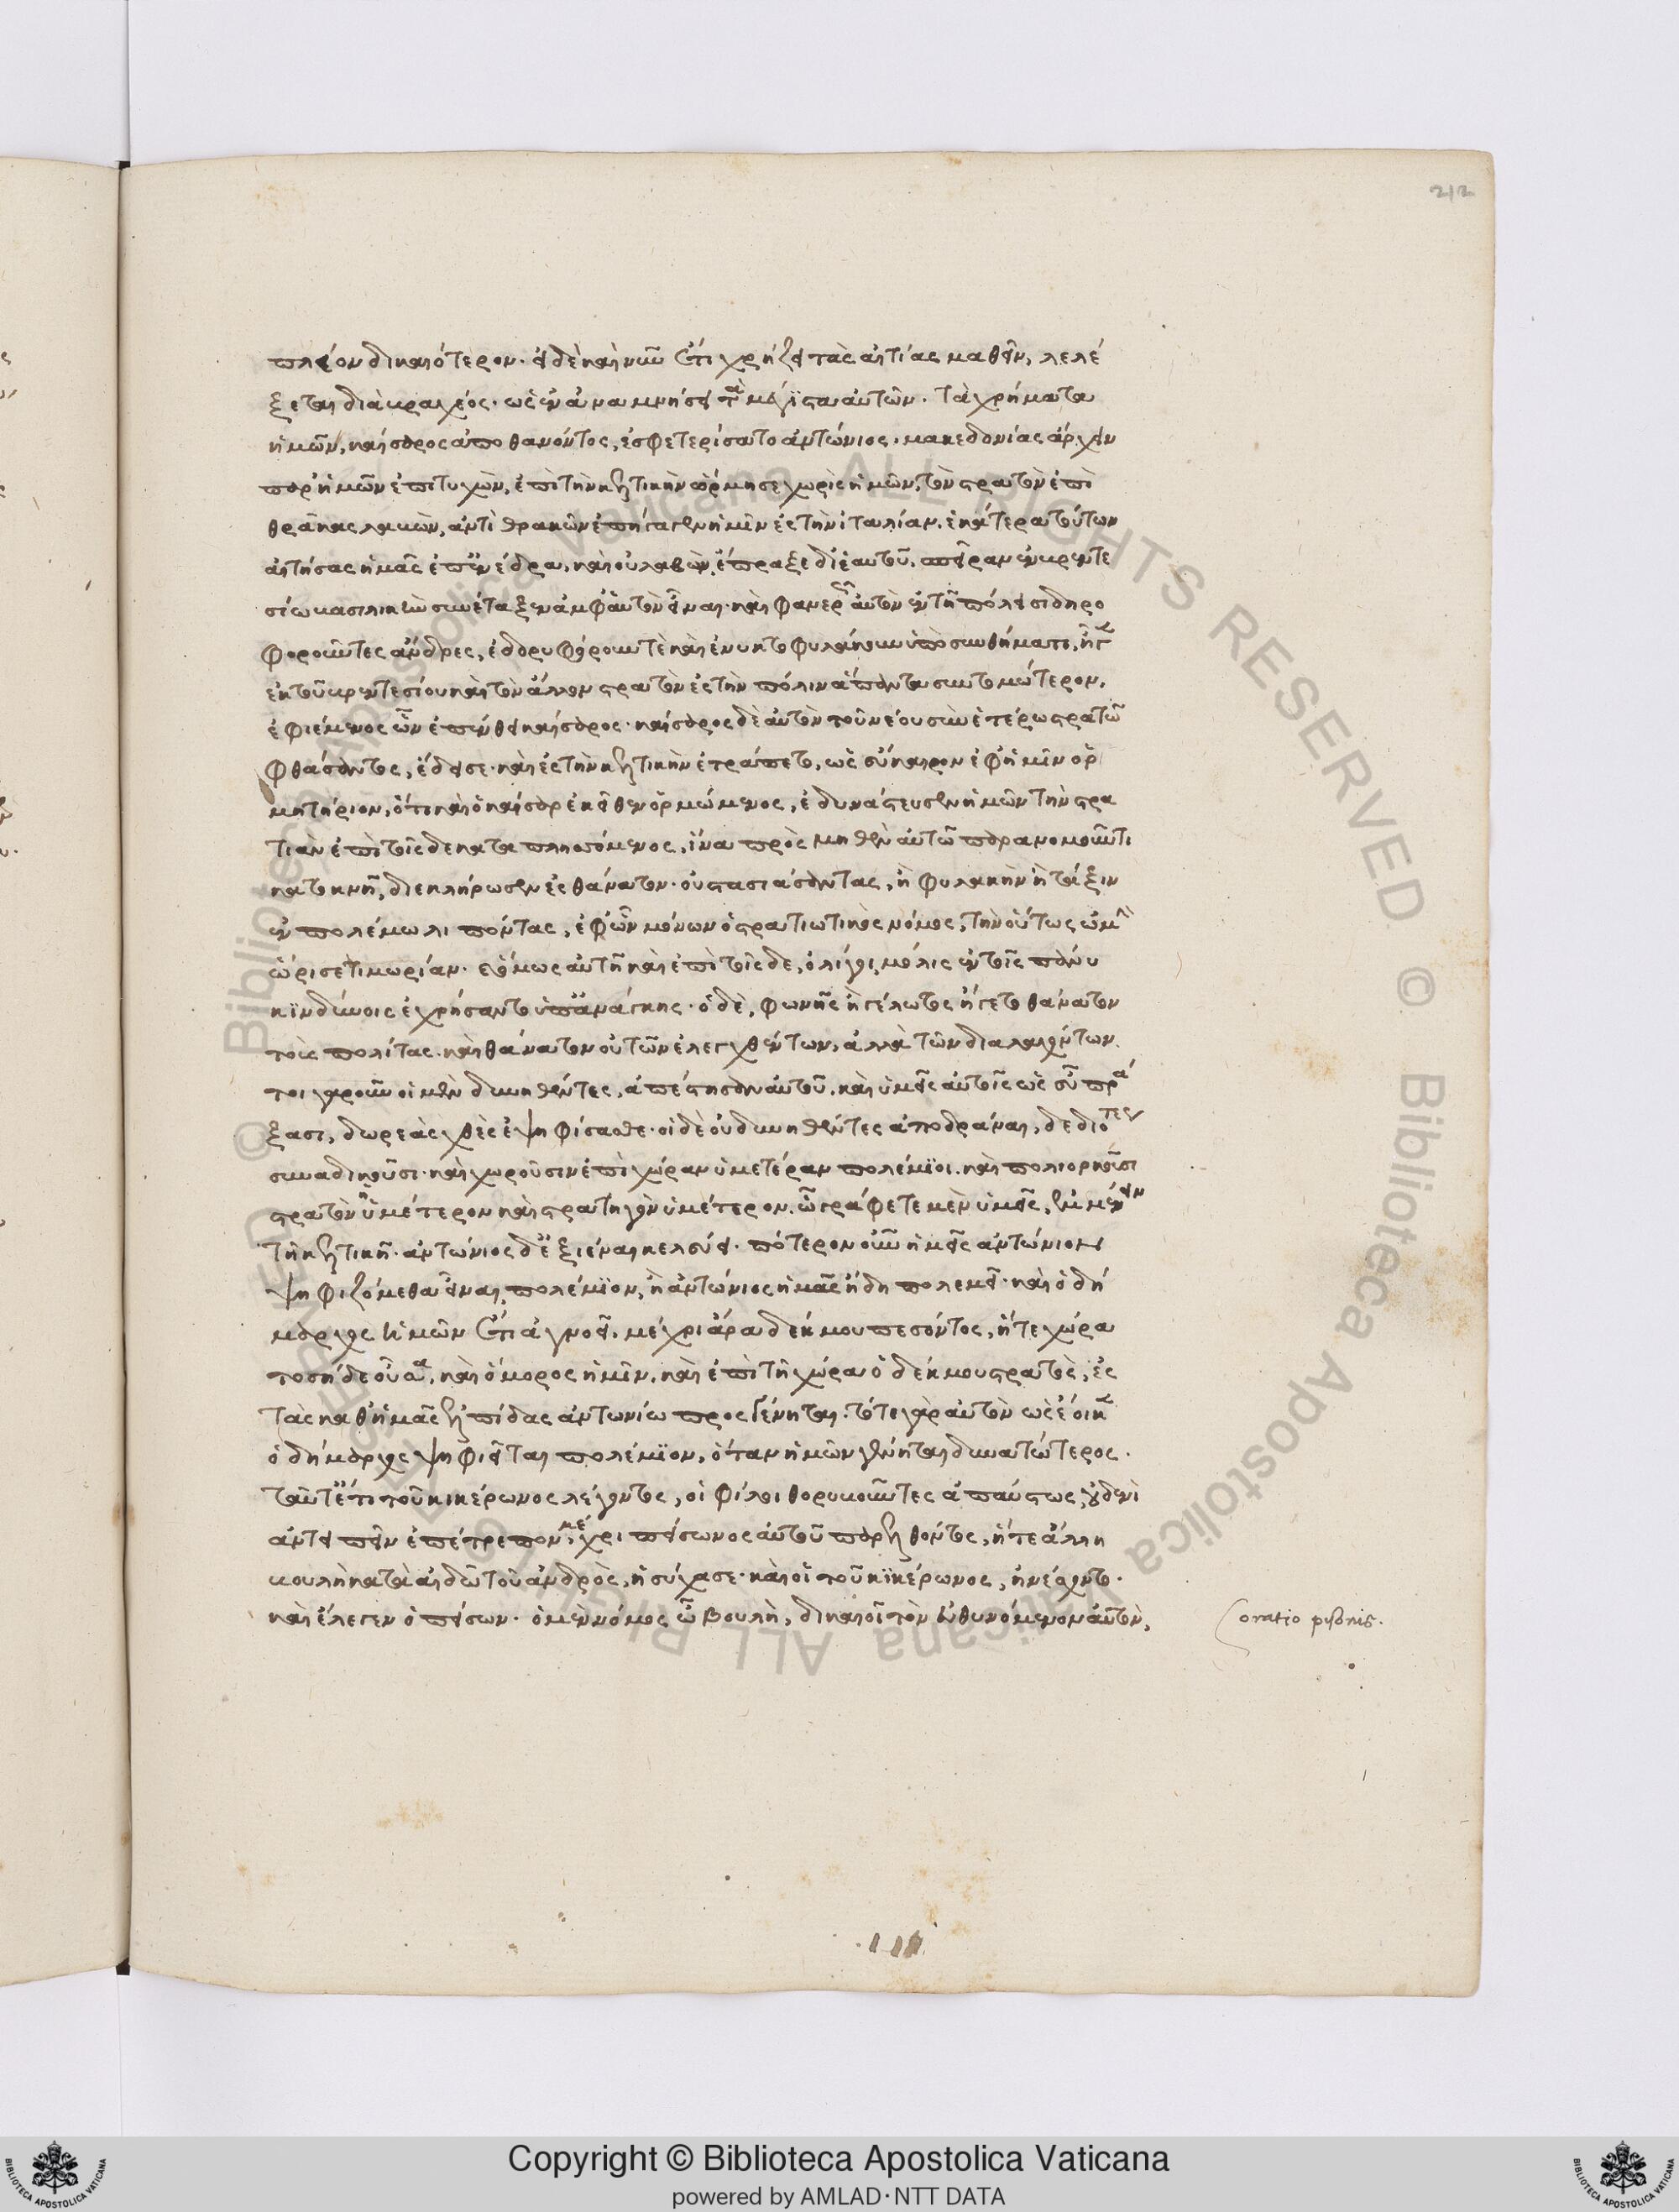 212
πλέον δικαιότερον. εἰ δὲ καὶ νῦν ἔτι χρῄζει τὰς αἰτίας μαθεῖν, λελέ
ξεται διὰ βραχέος. ὡς ἐν ἀναμνήσει τὰ μέγιστα αὐτῶν. τὰ χρήματα
ἡμῶν, καίσαρος ἀποθανόντος, ἐσφετερίσατο ἀντώνιος. μακεδονίας ἄρχειν
παρ' ἡμῶν ἐπιτυχὼν, ἐπὶ τὴν κελτικὴν ὥρμησε χωρὶς ἡμῶν. τὸν στρατὸν ἐπὶ
θρᾷκας λαβὼν, ἀντὶ θρακῶν ἐπήγαγεν ἡμῖν ἐς τὴν ἰταλίαν. ἑκάτερα τούτων
αἰτήσας ἡμᾶς ἐπ' ἐνέδρα, καὶ οὐ λαβὼν, ἔπραξε δι' ἑαυτοῦ. σπεῖραν ἐν βρεντε
σίω βασιλικὼ συνέταξεν ἀμφ' αὐτὸν εἶναι. καὶ φανερῶς αὐτὸν ἐν τῆ πόλει σιδηρο
φοροῦντες ἄνδρες, ἐδορυφόρουν τὲ καὶ ἐνυκτοφυλάκουν ὑπὸ συνθήματι, ἦγε
ἐκ τοῦ βρεντεσίου καὶ τὸν ἄλλον στρατὸν ἐς τὴν πόλιν ἅπαντα συντομώτερον,
ἐφιέμενος ὧν ἐπενόει καίσαρος. καίσαρος δὲ αὐτὸν τοῦ νέου σὺν ἑτέρω στρατῶ
φθάσαντος, ἔδεισε. καὶ ἐς τὴν κελτικὴν ἐτράπετο, ὡς εὔκαιρον ἐφ' ἡμῖν ὁρ
μητήριον, ὅτι καὶ ὁ καίσαρ ἐκεῖθεν ὁρμώμενος, ἐδυνάστευσεν ἡμῶν τὴν στρα
τιὰν ἐπὶ τοῖσδε καταπληττόμενος, ἵνα πρὸς μηδὲν αὐτῶ παρανομοῦντι
κατοκνῆ, διεκλήρωσεν ἐς θάνατον. οὐ στασιάσαντας, ἢ φυλακὴν ἢ τάξιν
ἐν πολέμω λιπόντας, ἐφ' ὧν μόνων ὁ στρατιωτικὸς νόμος, τὴν οὕτως ὠμὴν
ὥρισε τιμωρίαν. ἐφ' ὅμως αὐτῆ καὶ ἐπὶ τοῖσδε, ὀλίγοι μόλις ἐν τοῖς πάνυ
κινδύνοις ἐχρήσαντο ὑπ' ἀνάγκης. ὁ δὲ, φωνῆς ἢ γέλωτος ἦγετο θάνατον
τοὺς πολίτας. καὶ θάνατον οὐ τῶν ἐλεγχθέντων, ἀλλὰ τῶν διαλαχόντων
τοιγαροῦν οἱ μὲν δυνηθέντες, ἀπέστησαν αὐτοῦ. καὶ ὑμεῖς αὐτοῖς ὡς εὖ πρά
ξασι, δωρεὰς χθὲς ἐψηφίσασθε. οἱ δὲ οὐ δυνηθέντες ἀποδρᾶναι, δεδιότες
συναδικοῦσι. καὶ χωροῦσιν ἐπὶ χώραν ὑμετέραν πολέμιοι. καὶ πολιορκοῦσι
στρατὸν ὑμέτερον καὶ στρατηγὸν ὑμέτερον. ὧ γράφετε μὲν ὑμεῖς, ἐμμένειν
τῆ κελτικῆ. ἀντώνιος δ' ἐξιέναι κελεύει. πότερον οὖν ἡμεῖς ἀντώνιον
ψηφιζόμεθα εἶναι πολέμιον, ἢ ἀντώνιος ἡμᾶς ἤδη πολεμεῖ. καὶ ὁ δή
μαρχος ἡμῶν ἔτι ἀγνοεῖ. μέχρι ἄρα δέκμου πεσόντος, ἥ τε χώρα
τοσήδε οὖσα, καὶ ὅμορος ἡμῖν, καὶ ἐπὶ τῆ χώρα ὁ δέκμου στρατὸς, ἐς
τὰς καθ' ἡμᾶς ἐλπίδας ἀντωνίω προσγένηται. τότε γὰρ αὐτὸν ὡς ἔοικεν
ὁ δήμαρχος ψηφιεῖται πολέμιον, ὅταν ἡμῶν γένηται δυνατώτερος.
ταῦτ' ἔτι τοῦ κικέρωνος λέγοντος, οἱ φίλοι θορυβοῦντες ἀπαύστως, οὐδενὶ
ἀντειπεῖν ἐπέτρεπον, μέχρι πείσωνος αὐτοῦ παρελθόντος, ἥ τε ἄλλη
βουλὴ κατὰ αἰδῶ τοῦ ἀνδρὸς, ἡσύχασε. καὶ οἱ τοῦ κικέρωνος, ἠνέσχοντο.
καὶ ἔλεγεν ὁ πείσων. ὁ μὲν νόμος ὦ βουλὴ, δικαιοῖ τὸν εὐθυνόμενον αὐτὸν,
oratio pisonis.
Copyright © Biblioteca Apostolica Vaticana
powered by AMLAD·NTT DATA